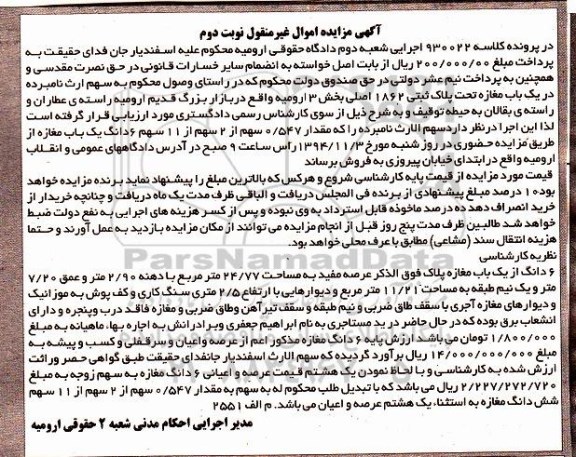 آگهی مزایده اموال غیرمنقول نوبت دوم
در پرونده کلاسه ۹۳۰۰۲۲ اجرایی شعبه دوم دادگاه حقوقی ارومیه محکوم علیه اسفندیار جان فدای حقیقت به
پرداخت مبلغ ۲۰۰/۰۰۰/۰۰ ریال از بابت اصل خواسته به انضمام سایر خسارات قانونی در حق نصرت مقدسی و
همچنین به پرداخت نیم عشر دولتی در حق صندوق دولت محکوم که در راستای وصول محکوم به سهم ارث نامبرده
در یک باب مغازه تحت پلاک ثبتی ۱۸۶۲ اصلی بخش ۳ ارومیه واقع در بازار بزرگ قدیم ارومیه راسته ی عطاران و
راسته ی بقالان به حیطه توقیف و به شرح ذیل از سوی کارشناس رسمی دادگستری مورد ارزیابی قرار گرفته است
لذا این اجرا در نظر دارد سهم الارث نامبرده را که مقدار ۰/۵۴۷ سهم از ۲ سهم از ۱۱ سهم ۶دانگ یک باب مغازه از
طریق مزایده حضوری در روز شنبه مورخ ۱۳۹۴/۱۱/۳ راس ساعت ۹ صبح در آدرس دادگاههای عمومی و انقلاب
ارومیه واقع در ابتدای خیابان پیروزی به فروش برساند
قیمت مورد مزایده از قیمت پایه کارشناسی شروع و هرکس که بالاترین مبلغ را پیشنهاد نماید برنده مزایده خواهد
بود ۱۰ درصد مبلغ پیشنهادی از برنده فی المجلس دریافت و الباقی ظرف مدت یک ماه دریافت و چنانچه خریدار از
خرید انصراف دهد ده درصد ماخوذه قابل استرداد به وی نبوده و پس از کسر هزینه های اجرایی به نفع دولت ضبط
خواهد شد طالبین ظرف مدت پنج روز قبل از انجام مزایده می توانند از مکان مزایده بازدید به عمل آورند و حتما
هزینه انتقال سند (مشاعی) مطابق با عرف محلی خواهد بود.
نظریه کارشناسی
۶ دانگ از یک باب مغازه پلاک فوق الذکر عرصه مفید به مساحت ۲۴/۷۷ متر مربع با دهنه ۲/۹۰ متر و عمق ۷/۲۰
متر و یک نیم طبقه به مساحت ۱۱/۲۱ متر مربع و دیوارهایی با ارتفاع ۲/۵ متری سنگ کاری و کف پوش به موزائیک
و دیوارهای مغازه آجری با سقف طاق ضربی و نیم طبقه و سقف تیرآهن وطاق ضربی و مغازه فاقد درب وپنجره و دارای
انشعاب برق بوده که در حال حاضر در ید مستاجری به نام ابراهیم جعفری و برادرانش به اجاره بها، ماهیانه به مبلغ
۱/۸۰۰/۰۰۰ تومان می باشد ارزش پایه ۶ دانگ مغازه مذکور اعم از عرصه و اعیان و سرقفلی و کسب و پیشه به
مبلغ ۱۴/۰۰۰/۰۰۰/۰۰۰ ریال برآورد گردیده که سهم الارث اسفندیار جانفدای حقیقت طبق گواهی حصر وراثت
ارزش شده به کارشناسی و با لحاظ نمودن یک هشتم قیمت عرصه و اعیانی ۶ دانگ مغازه به سهم زوجه به مبلغ
۲/۲۲۷/۲۷۲/۷۲۰ ریال می باشد که با تبدیل طلب محکوم له به سهم به مقدار ۰/۵۴۷ سهم از ۲ سهم از ۱۱ سهم
شش دانگ مغازه به استثناء یک هشتم عرصه و اعیان می باشد. م الف ۲۵۵۱
مدیر اجرایی احکام مدنی شعبه ۲ حقوقی ارومیه
ParsNamadData